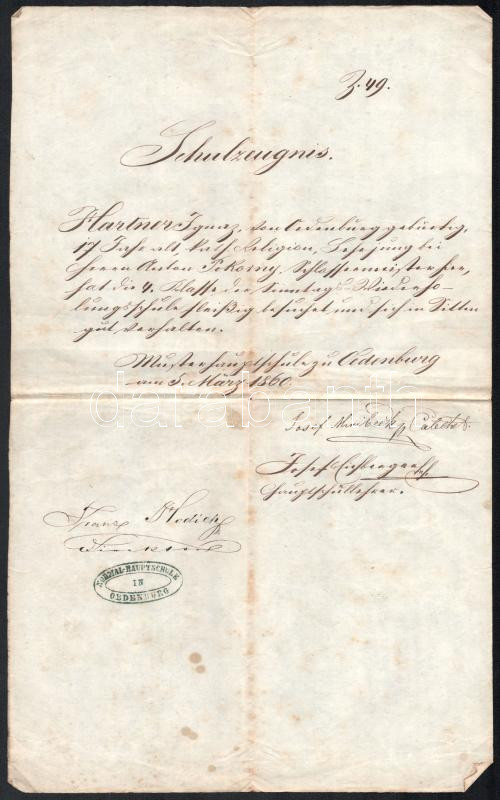 Z. 49.
Schulzeugnis.
Hartner Ignaz, von Oedenburg gebürtig,
17 Jahr alt, kath. Religion, Lehrjung bei
Herrn Anton Pokorny, Schlossermeister hier,
hat die 4. Klasse der Sonntags Wiederho-
lungsschule fleißig besuchet und sich in Sitten
gut verhalten.
Musterhauptschule zu Oedenburg
am 5. März 1860.
Josef
Josef
Hauptschullehrer.
Franz
Direktor
NORMAL-HAUPTSCHULE
IN
OEDENBURG
darabanth